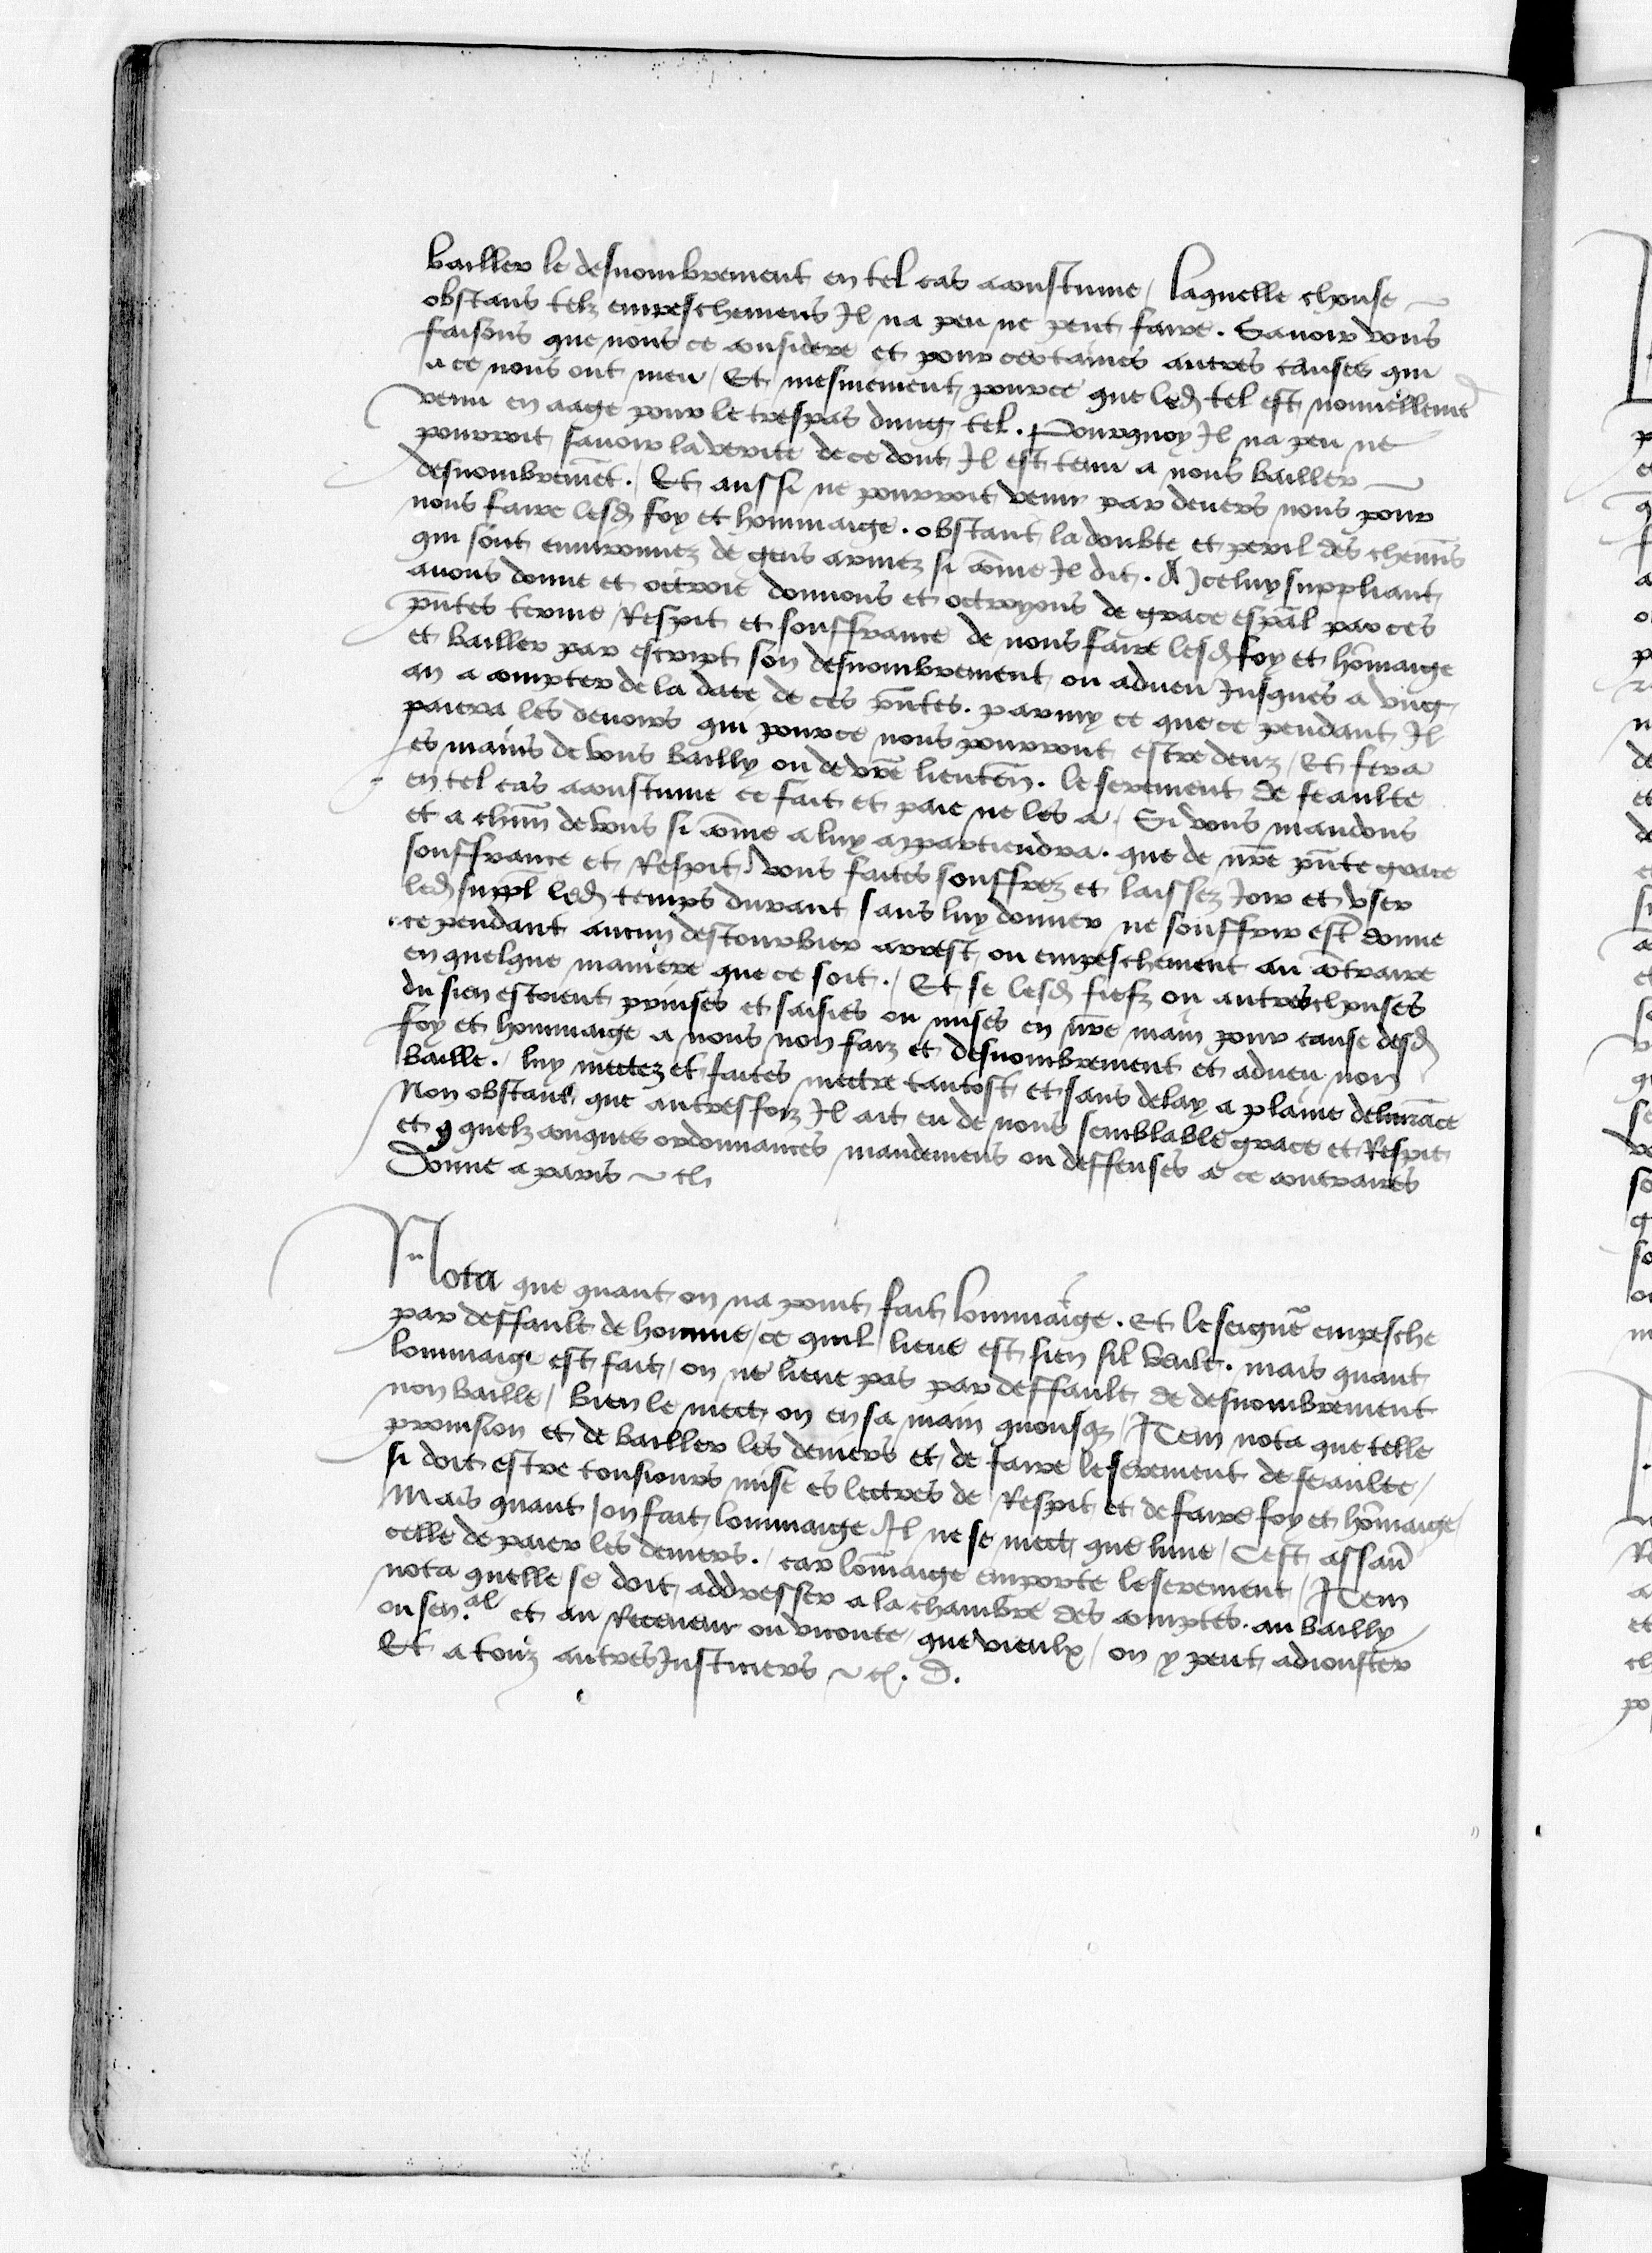 bailler le desnombrement en tel cas acoustume / laquelle chouse
obstans telz empeschemens Il na peu ne peut faire . Sauoir vous
faisons que nous ce considere et pour certaines autres causes qui
a ce nous ont meu / Et mesmement pource que led tel est nouuellemẽt
venu en aage pour le trespas dung tel . Pourquoy Il na peu ne
pourroit sauoir la verite de ce dont Il est tenu a nous bailler
desnombremẽt . Et aussi ne pourroit venir par deuers nous pour
nous faire lesd foy et hommaige . obstant la doubte et peril des chemĩs
qui sont enuironnez de gens armez si cõme Il dit . A Iceluy suppliant
auons donne et octroie donnons et octroyons de grace espãl par ces
pñtes terme Respit et souffrance de nous faire lesd foy et hõmaige
et bailler par escript son desnombrement ou adueu Jusques a vng
an a compter de la date de ces pñtes . parmy ce que ce pendant Il
paiera les deuoirs qui pource nous pourront estre deuz / Et fera
es mains de vous bailly ou de vrẽ lieuteñ . le serement de feaulte
en tel cas acoustume ce fait et paie ne les a / Si vous mandons
et a chũn de vous si cõme a luy appartiendra . que de nrẽ pñte grace
souffrance et Respit vous faites souffrez et laissez Joir et vser
led suppl led temps durant sans luy donner ne souffrir estr̃ donne
ce pendant aucun destourbier arrest ou empeschement au cõtraire
en quelque maniere que ce soit . / Et se lesd fiefz ou autres chouses
du sien estoient prinses et saisies ou mises en nrẽ main pour cause desd
foy et hommaige a nous non faiz et desnombrement et adueu non
baille . luy mectez et faites mectre tantost et sans delay a plaine deliurãce
Non obstant que autresfoiz Il ait eu de nous semblable grace et Respit
et 9 quelzconques ordonnances mandemens ou deffenses a ce contraires
Donne a paris ~ etc.
Nota que quant on na point fait lommaige . et le seignr̃ empesche
par deffault de homme / ce quil lieue est sien sil veult . mais quant
lommaige est fait / on ne lieue pas par deffault de desnombrement
non baille / bien le mect on en sa main quousqz / Item nota que telle
prouision et de bailler les deniers et de faire le serement de feaulte /
si doit estre tousiours mise es lectres de Respit et de faire foy et hõmaige /
Mais quant on fait lommaige Il ne se mect que lune / Cest assau̾
celle de paier les deniers . / car lom̃aige emporte le serement / Item
nota quelle se doit addresser a la chambre des comptes . au bailly
ou sen.al et au Receueur ou viconte / que vieulx / on y peut adiouster
Et a touz autres Justiciers ~ etc. D.